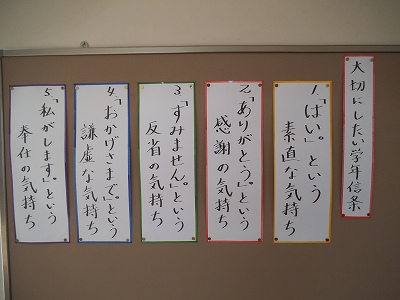 大切にしたい学年信条
1.「はい。」という
素直な気持ち
2.「ありがとう。」という
感謝の気持ち
3.「すみません。」という
反省の気持ち
4.「おかげさまで。」という
謙虚な気持ち
5.「私がします。」という
奉仕の気持ち